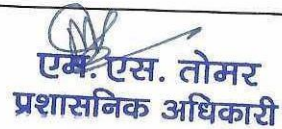 एम. एस. तोमर
प्रशासनिक अधिकारी